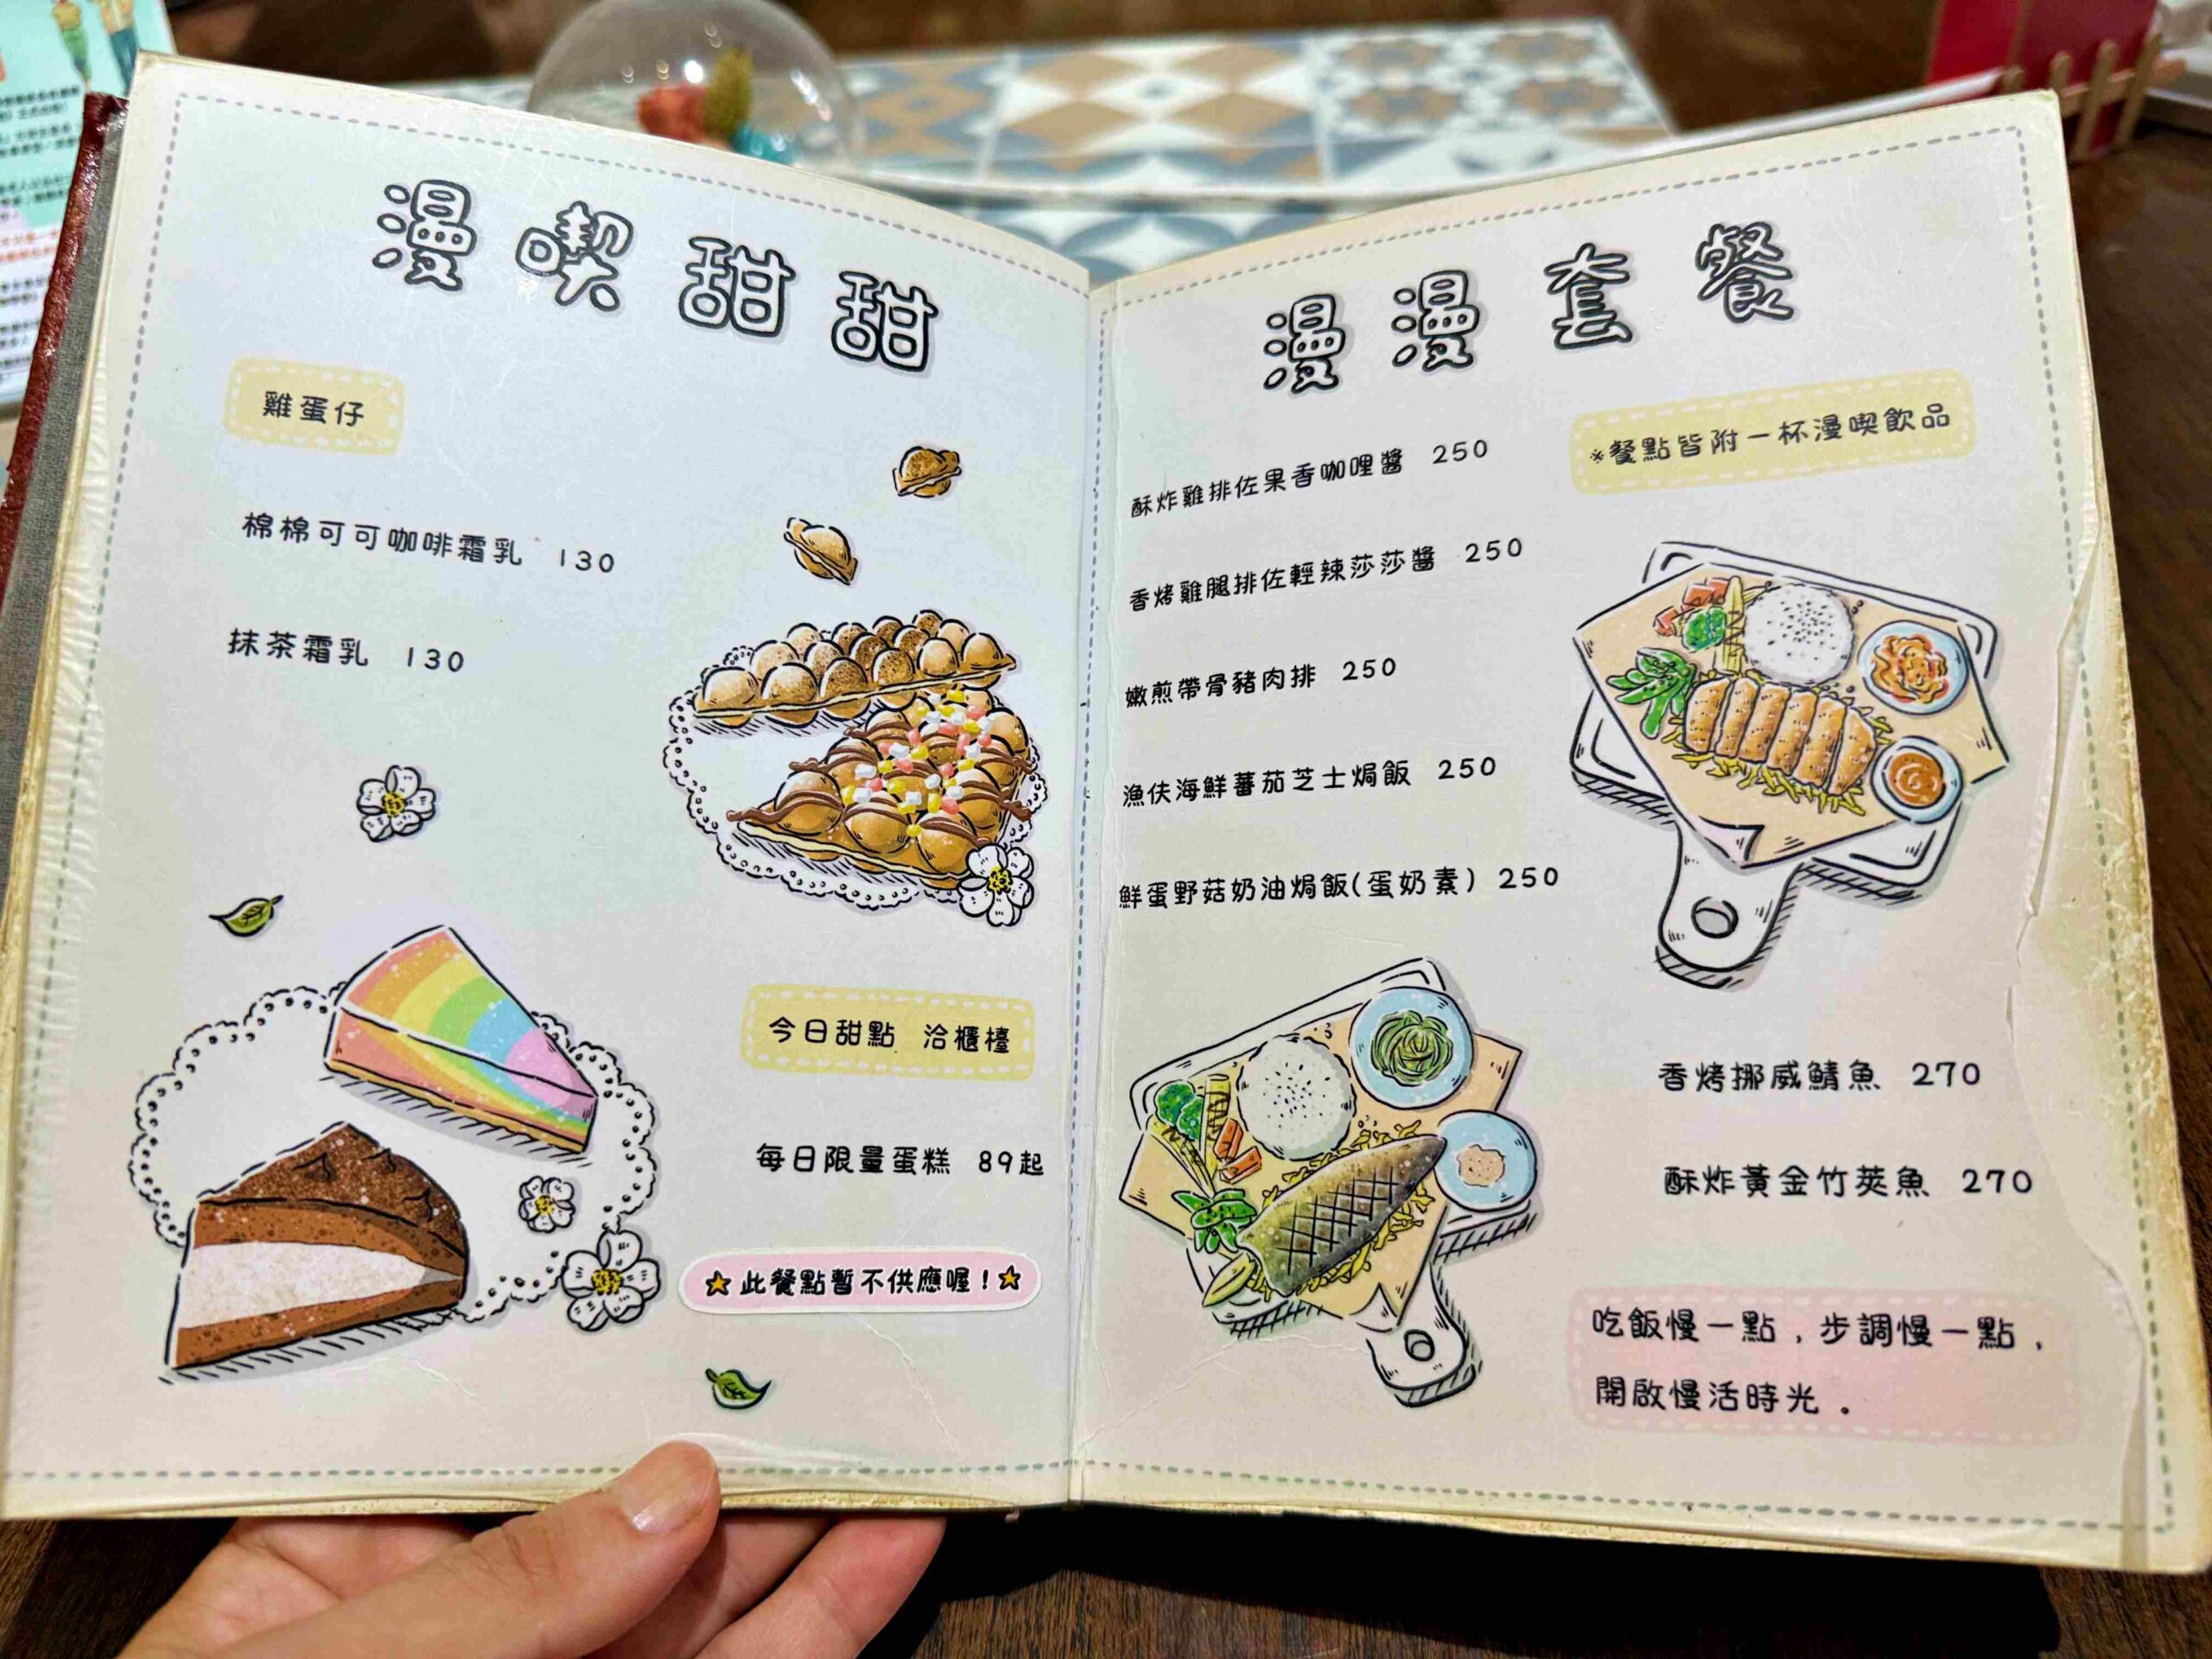 漫喫甜甜
雞蛋仔
棉棉可可咖啡霜乳 130
抹茶霜乳 130
今日甜點 洽櫃檯
每日限量蛋糕 89起
此餐點暫不供應喔!
漫漫套餐
※餐點皆附一杯漫喫飲品
酥炸雞排佐果香咖哩醬 250
香烤雞腿排佐輕辣莎莎醬 250
嫩煎帶骨豬肉排 250
漁伕海鮮蕃茄芝士焗飯 250
鮮蛋野菇奶油焗飯(蛋奶素) 250
香烤挪威鯖魚 270
酥炸黃金竹莢魚 270
吃飯慢一點,步調慢一點,
開啟慢活時光。